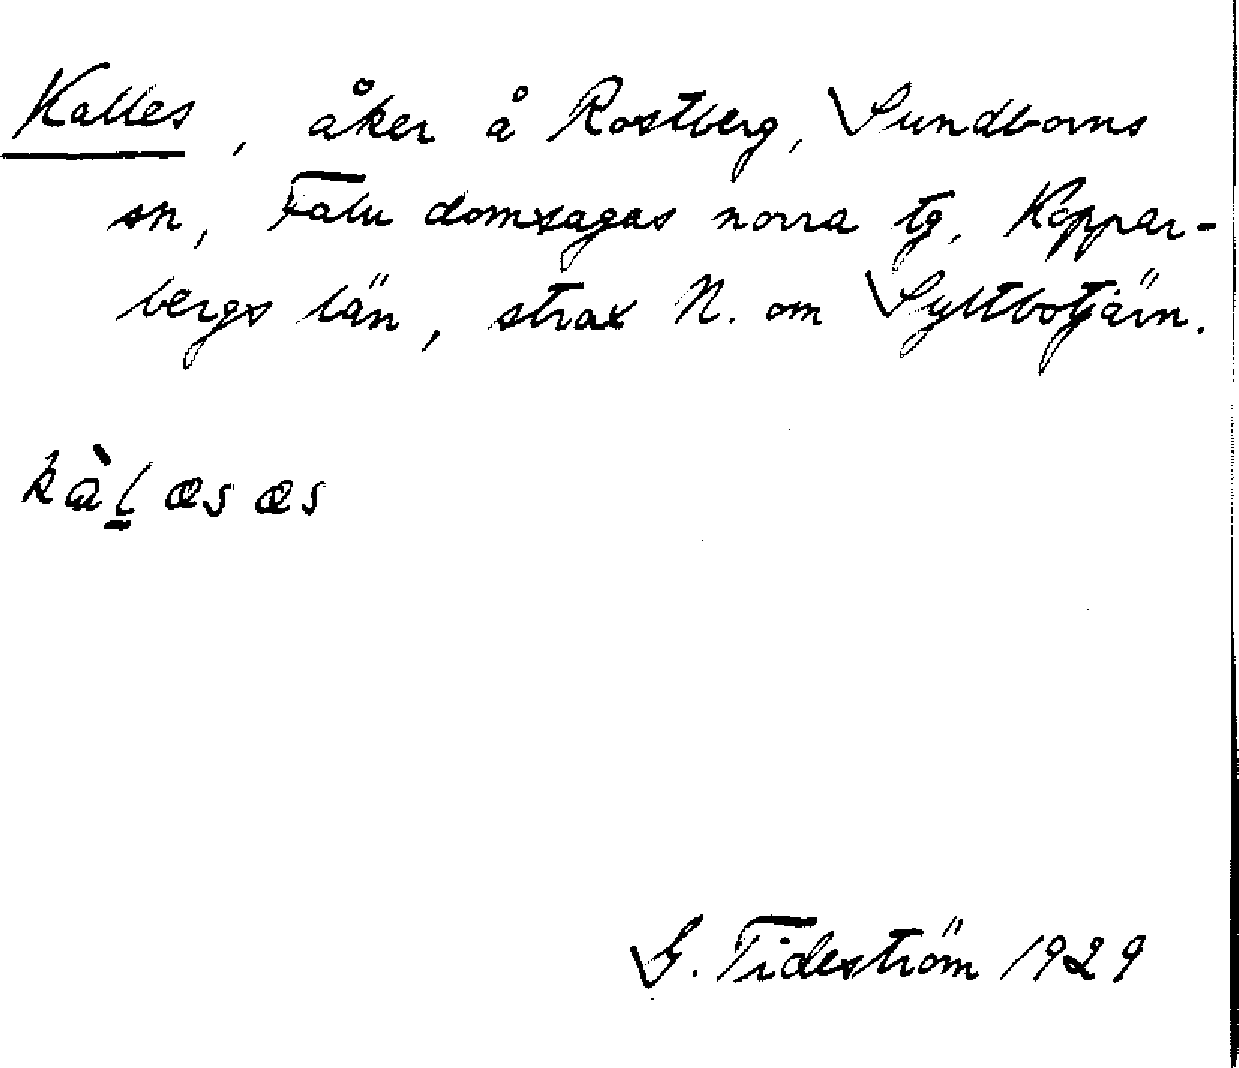 Kalles, åker å Rostberg, Sundborns
sn, Falu domsagas norra tg, Koppar-
bergs län, strax N. om Syltbotjärn.
kàl̲æsæs
G. Tideström 1929